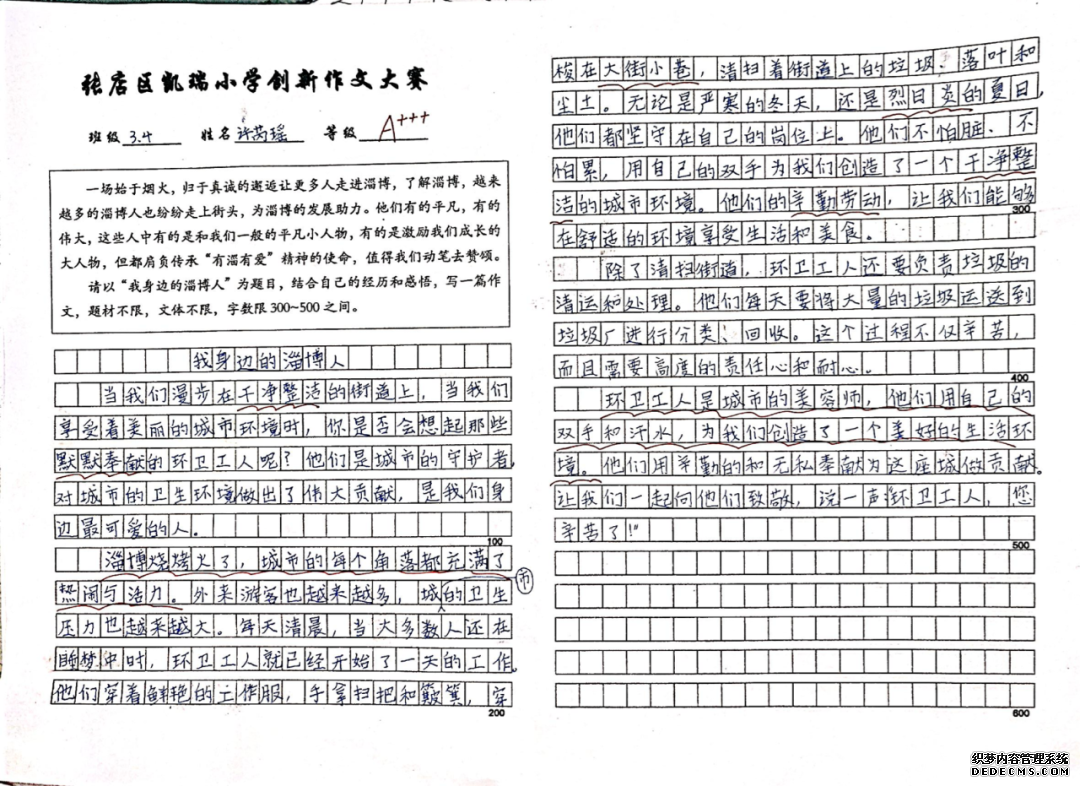 张店区凯瑞小学创新作文大赛
班级 3.4 姓名 许苪瑶 等级 A+++
一场始于烟火，归于真诚的邂逅让更多人走进淄博，了解淄博，越来
越多的淄博人也纷纷走上街头，为淄博的发展助力。他们有的平凡，有的
伟大，这些人中有的是和我们一般的平凡小人物，有的是激励我们成长的
大人物，但都肩负传承“有淄有爱”精神的使命，值得我们动笔去赞颂。
请以“我身边的淄博人”为题目，结合自己的经历和感悟，写一篇作
文，题材不限，文体不限，字数限 300~500 之间。
我身边的淄博人
当我们漫步在干净整洁的街道上，当我们
享受着美丽的城市环境时，你是否会想起那些
默默奉献的环卫工人呢？他们是城市的守护者，
对城市的卫生环境做出了伟大贡献，是我们身
边最可爱的人。
100
淄博烧烤火了，城市的每个角落都充满了
热闹与活力。外来游客也越来越多，城的卫生
市
压力也越来越大。每天清晨，当大多数人还在
睡梦中时，环卫工人就已经开始了一天的工作。
他们穿着鲜艳的工作服，手拿扫把和簸箕，穿
200
梭在大街小巷，清扫着街道上的垃圾、落叶和
尘土。无论是严寒的冬天，还是烈日炎的夏日，
他们都坚守在自己的岗位上。他们不怕脏、不
怕累，用自己的双手为我们创造了一个干净整
洁的城市环境。他们的辛勤劳动，让我们能够
300
在舒适的环境享受生活和美食。
除了清扫街道，环卫工人还要负责垃圾的
清运和处理。他们每天要将大量的垃圾运送到
垃圾厂进行分类、回收。这个过程不仅辛苦，
而且需要高度的责任心和耐心。
400
环卫工人是城市的美容师，他们用自己的
双手和汗水，为我们创造了一个美好的生活环
境。他们用辛勤的和无私奉献为这座城做贡献。
让我们一起向他们致敬，说一声“环卫工人，您
辛苦了！”
500
600
织梦内容管理系统
DEDECMS.COM